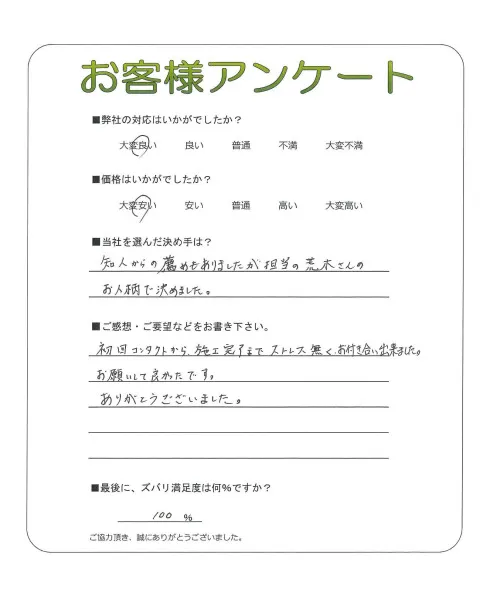 お客様アンケート
■弊社の対応はいかがでしたか？
大変良い 良い 普通 不満 大変不満
■価格はいかがでしたか？
大変安い 安い 普通 高い 大変高い
■当社を選んだ決め手は？
知人からの薦めもありましたが担当の荒木さんの
お人柄で決めました。
■ご感想・ご要望などをお書き下さい。
初回コンタクトから、施工完了までストレス無く、お付き合い出来ました。
お願いして良かったです。
ありがとうございました。
■最後に、ズバリ満足度は何%ですか？
100 %
ご協力頂き、誠にありがとうございました。